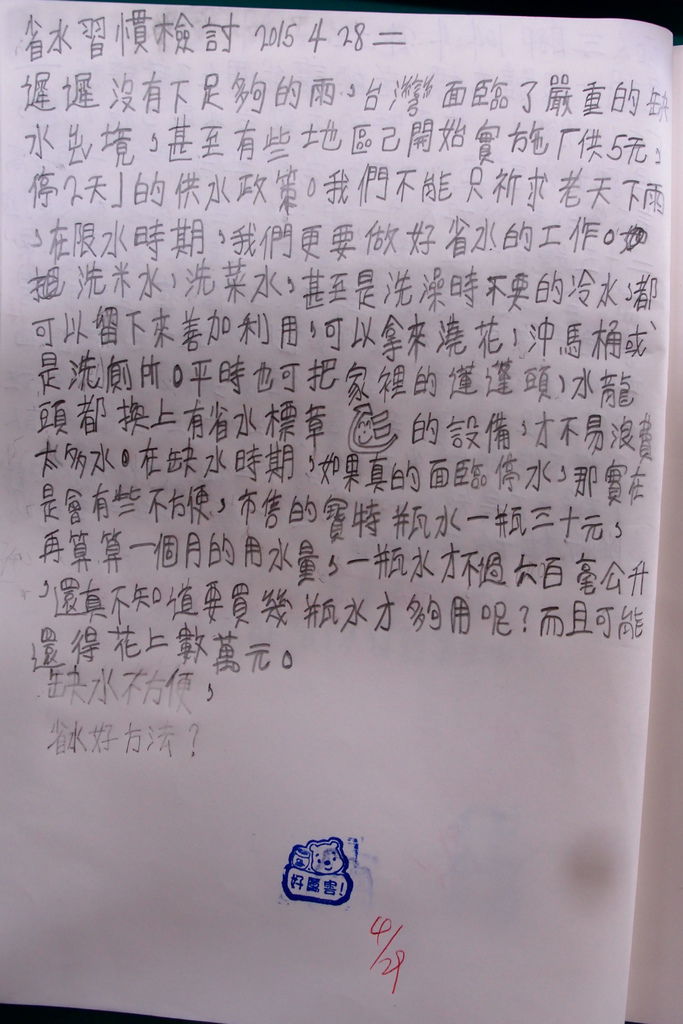 省水習慣檢討 2015 4 28 二
遲遲沒有下足夠的雨，台灣面臨了嚴重的缺
水出境，甚至有些地區己開始實施「供5元，
停2天」的供水政策。我們不能只祈求老天下雨
，在限水時期，我們更要做好省水的工作。如
把洗米水，洗菜水，甚至是洗澡時不要的冷水，都
可以留下來善加利用，可以拿來澆花，沖馬桶或
是洗廁所。平時也可把家裡的蓮蓬頭，水龍
頭都換上有省水標章的設備，才不易浪費
太多水。在缺水時期，如果真的面臨停水，那實在
是會有些不方便，市售的寶特瓶水一瓶三十元，
再算算一個月的用水量，一瓶水才不過六百毫公升
，還真不知道要買幾瓶水才夠用呢？而且可能
還得花上數萬元。
缺水不方便，
省水好方法？
好厲害！
4/29